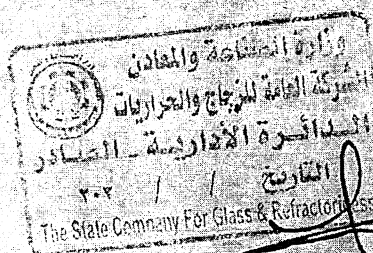 وزارة الصناعة والمعادن
الشركة العامة للزجاج والحراريات
الدائرة الادارية - الصادر
التاريخ / / ٢٠٢
The State Company For Glass & Refractoriess